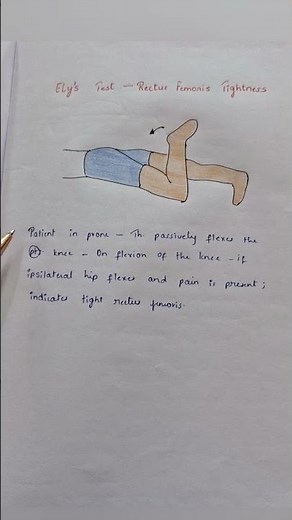 Ely's Test - Rectus Femoris Tightness
Patient in prone - Th. passively flexes the
pt. knee - On flexion of the knee - if
ipsilateral hip flexes and pain is present;
indicates tight rectus femoris.